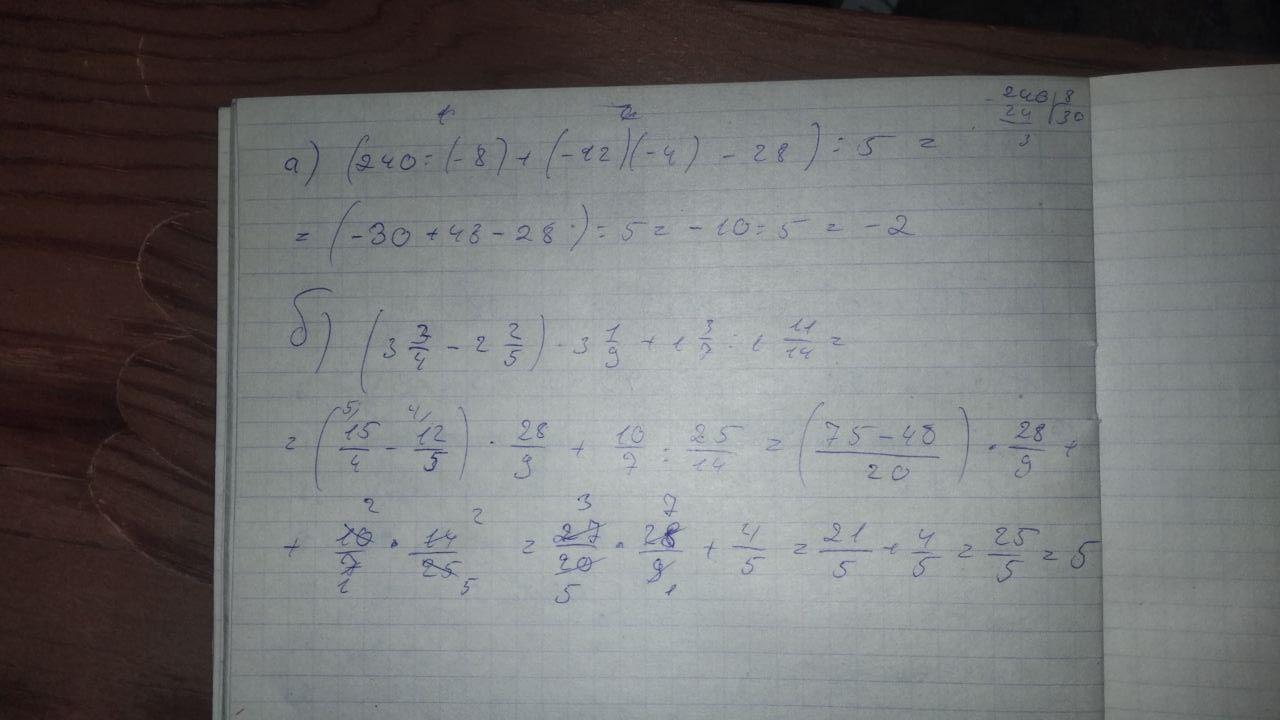 240 | 8
24 | 30
3
а) (240 : (-8) + (-12)(-4) - 28) : 5 =
= (-30 + 48 - 28) : 5 = -10 : 5 = -2
б) (3 3/4 - 2 2/5) · 3 1/9 + 1 3/7 : 1 11/14 =
= (15/4 - 12/5) · 28/9 + 10/7 : 25/14 = (75 - 48/20) · 28/9 +
+ 10/7 · 14/25 = 27/20 · 28/9 + 4/5 = 21/5 + 4/5 = 25/5 = 5